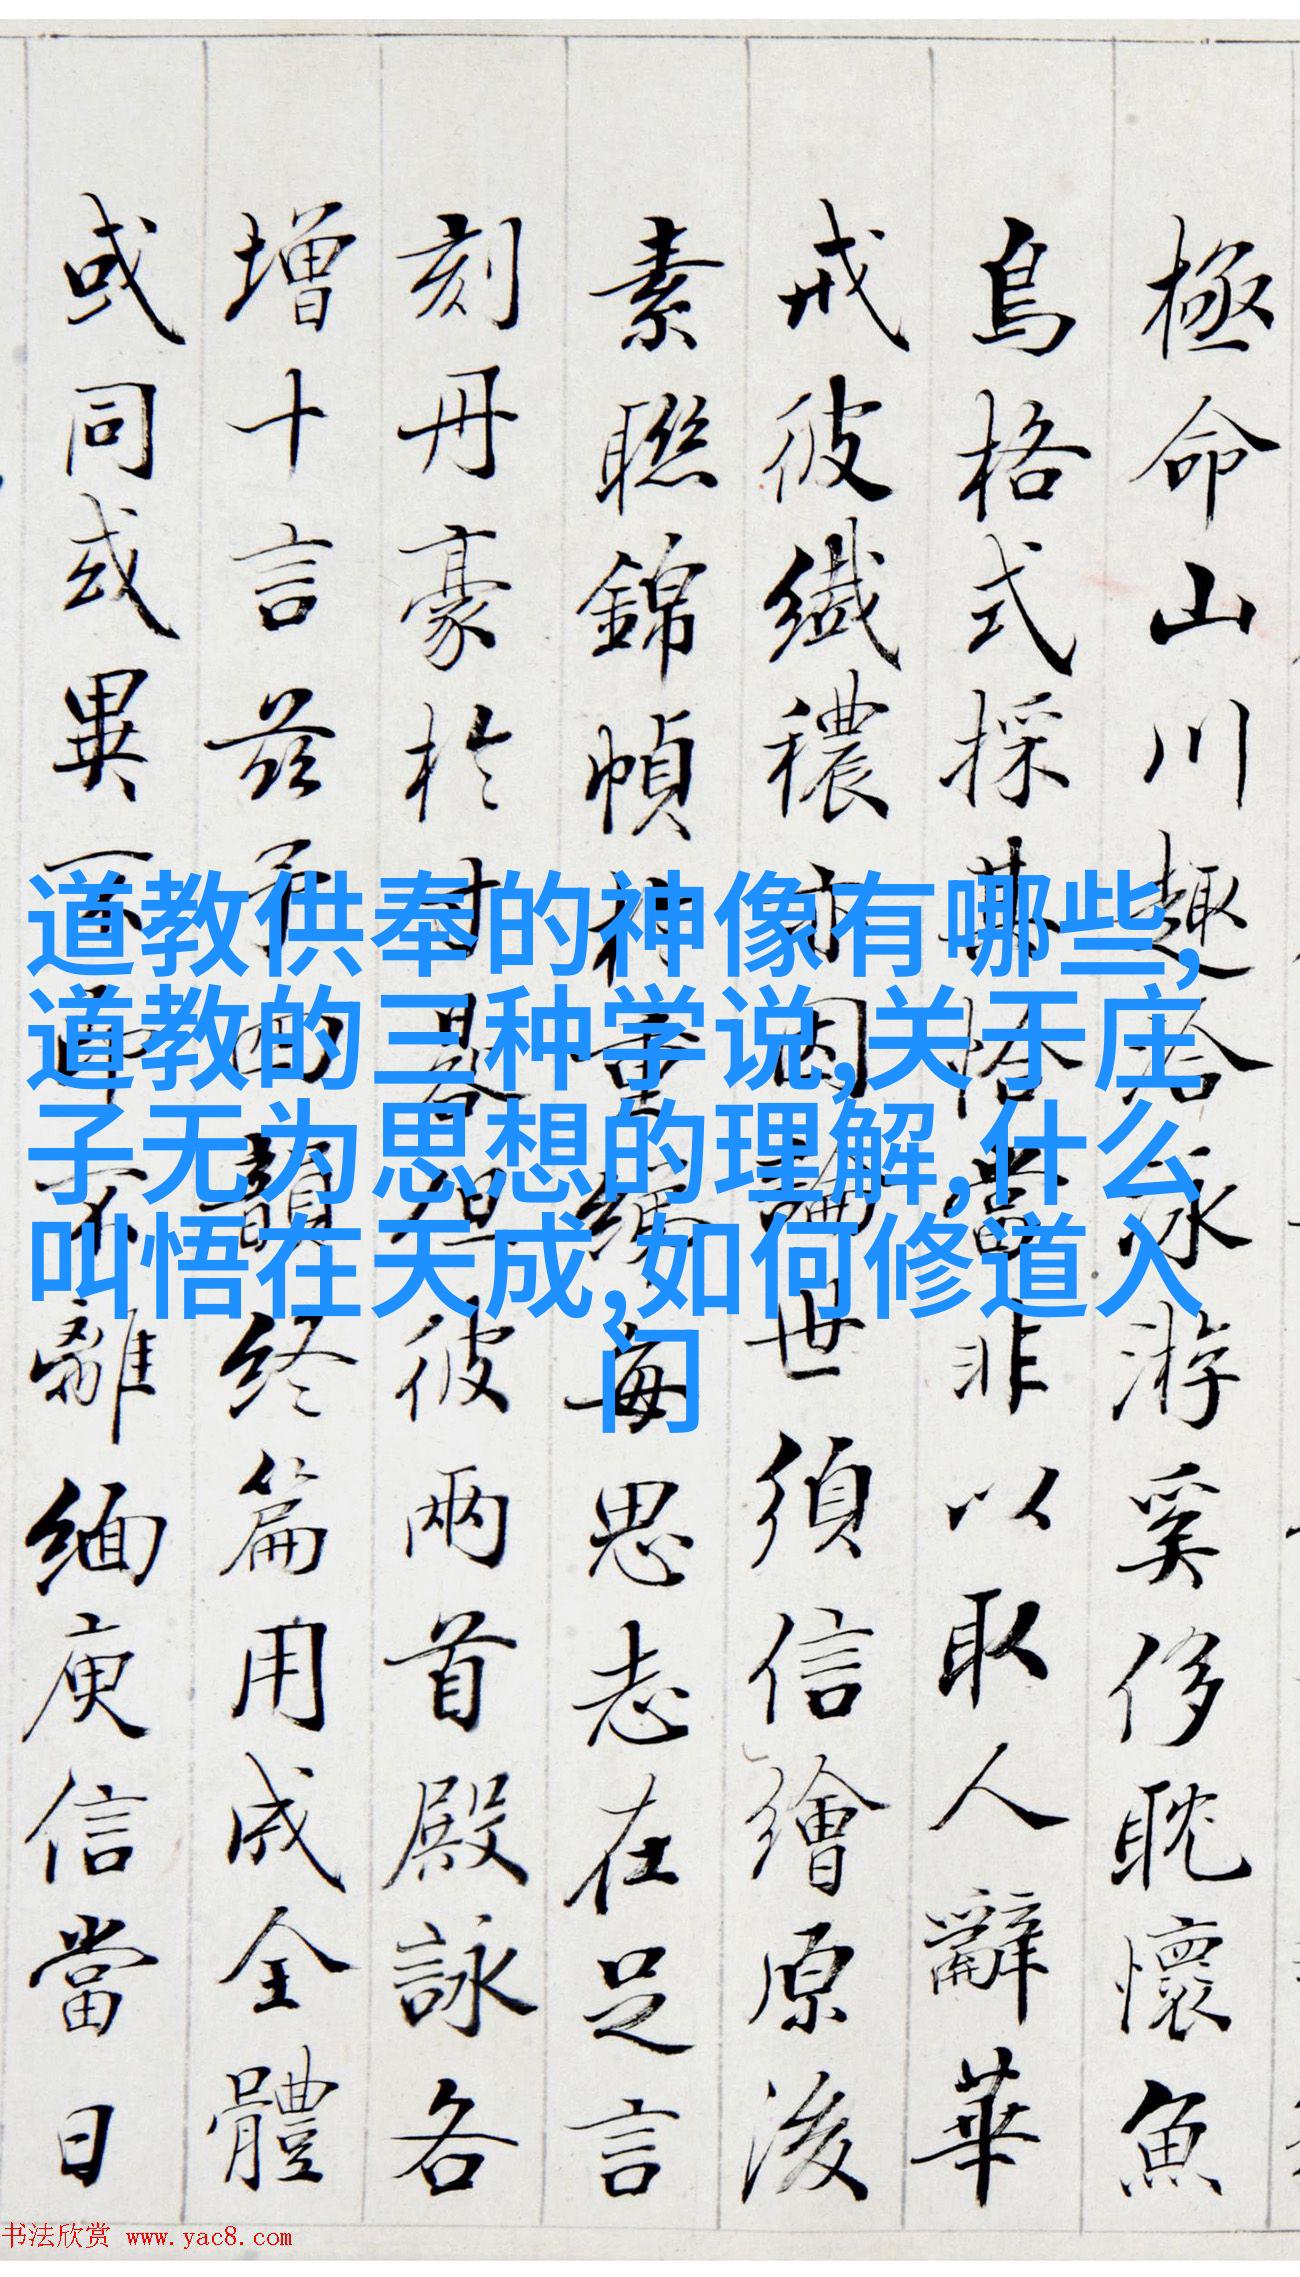 道教供奉的神像有哪些,
道教的三种学说,关于庄
子无为思想的理解,什么
叫悟在天成,如何修道入
门
極命山川趣合泳游奚侈耽懷魚
鳥格式採其恰當非以取人辭華
戒彼纖穠亦因論世須信繪原後
素聯錦幀重每思志在足言
刻丹豪於寸晷但彼兩首殿詠各
增十言茲于四韻終篇用成全體
或同或異不即不離緬庾信當日
书法欣赏 www.yac8.com